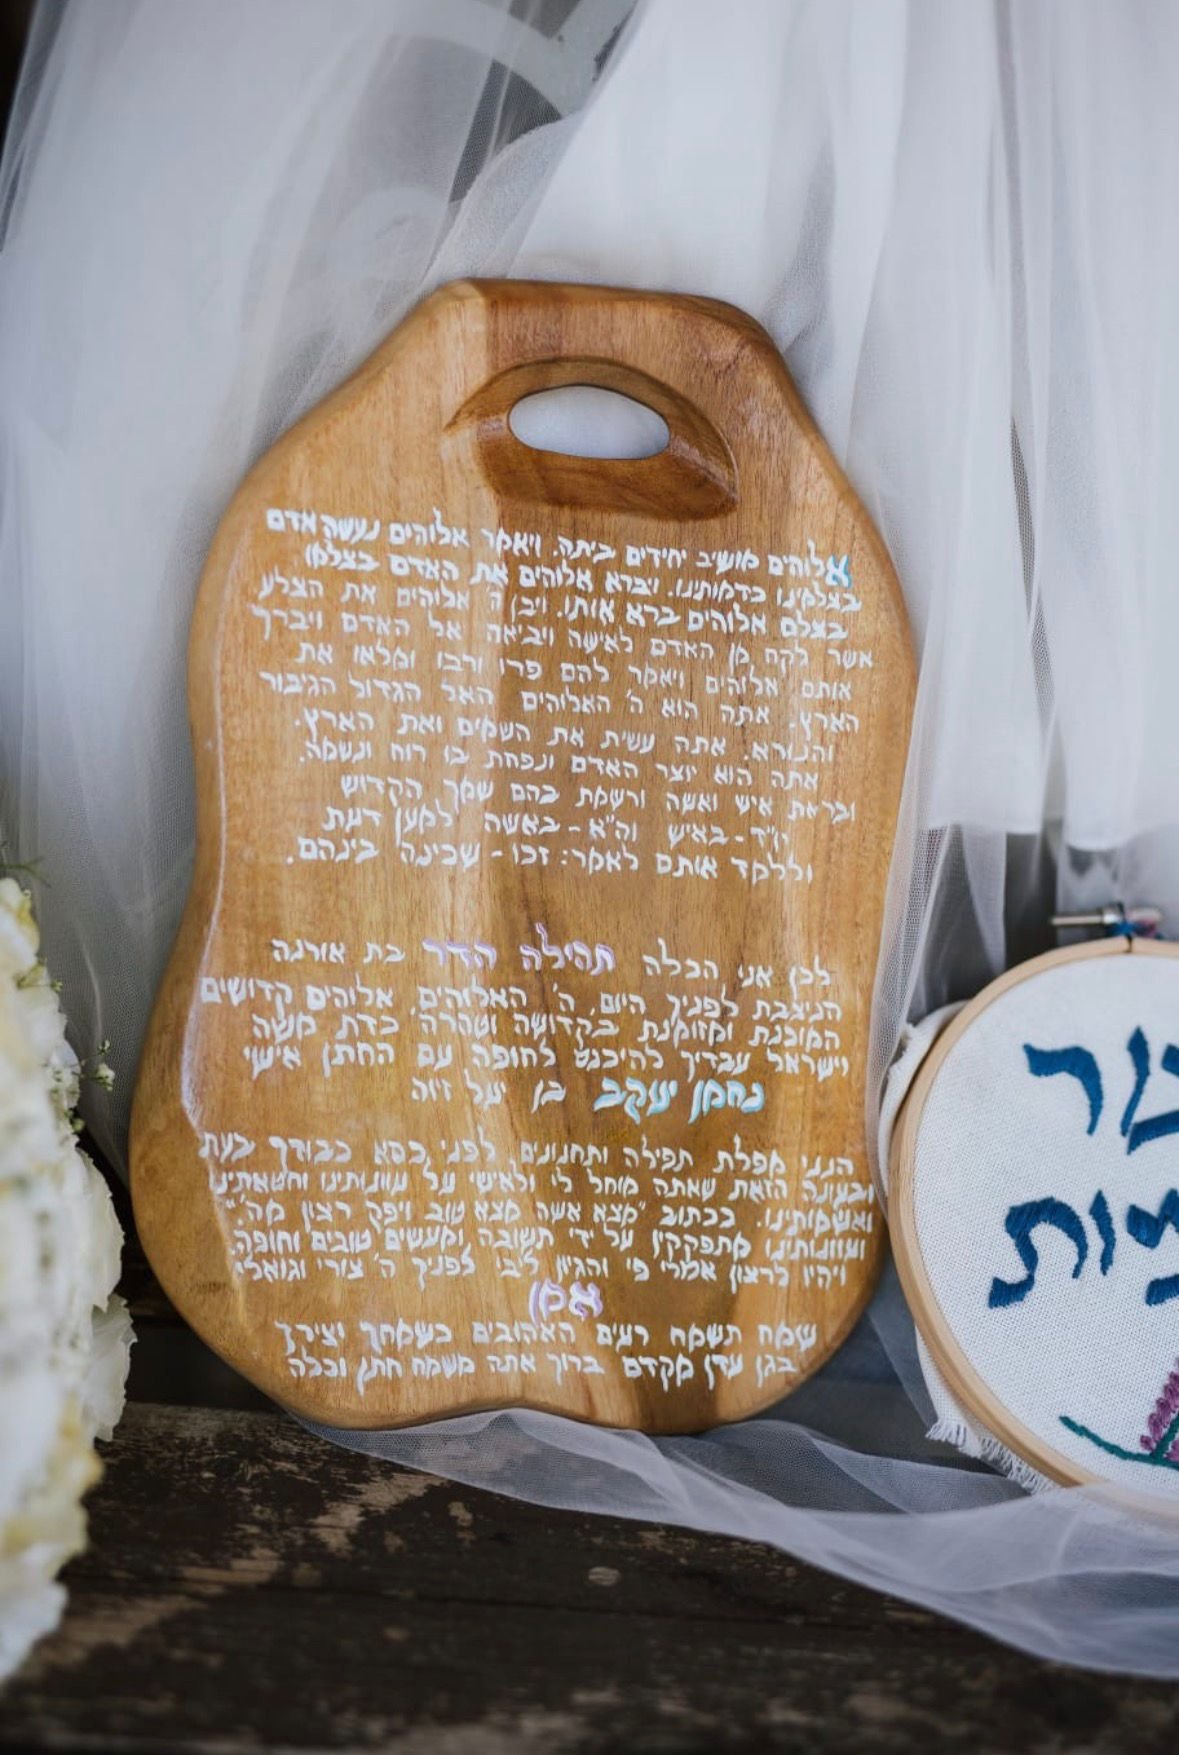 אלוהים מושיב יחידים ביתה. ויאמר אלוהים נעשה אדם
בצלמינו כדמותינו. ויברא אלוהים את האדם בצלמו
בצלם אלוהים ברא אותו. ויבן ה' אלוהים את הצלע
אשר לקח מן האדם לאישה ויביאה אל האדם ויברך
אותם אלוהים ויאמר להם פרו ורבו ומלאו את
הארץ. אתה הוא ה' האלוהים האל הגדול הגיבור
והנורא. אתה עשית את השמים ואת הארץ.
אתה הוא יוצר האדם ונפחת בו רוח ונשמה.
ובראת איש ואשה ורשמת בהם שמך הקדוש
יו"ד - באיש וה"א - באשה למען דעת
וללמד אותם לאמר: זכו - שכינה בינהם.
לכן אני הכלה תהילה הדר בת אורנה
הניצבת לפניך היום, ה' האלוהים, אלוהים קדושים
המוכנת ומזומנת בקדושה וטהרה כדת משה
וישראל עבדיך להיכנס לחופה עם החתן אישי
נחמן יעקב בן יעל זיוה
הנני מפלת תפילה ותחנונים לפני כסא כבודך בעת
ובעונה הזאת שאתה מוחל לי ולאישי על עוונותינו וחטאתינו
ואשמותינו. ככתוב "מצא אשה מצא טוב ויפק רצון מה'."
ועוונותינו מתפקקין על ידי תשובה ומעשים טובים וחופה.
ויהיו לרצון אמרי פי והגיון ליבי לפניך ה' צורי וגואלי
אמן
שמח תשמח רעים האהובים כשמחך יצירך
בגן עדן מקדם ברוך אתה משמח חתן וכלה